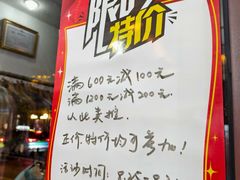 特价
满600元减100元
满1200元减200元
以此类推
正价、特价均可参加！
活动时间：